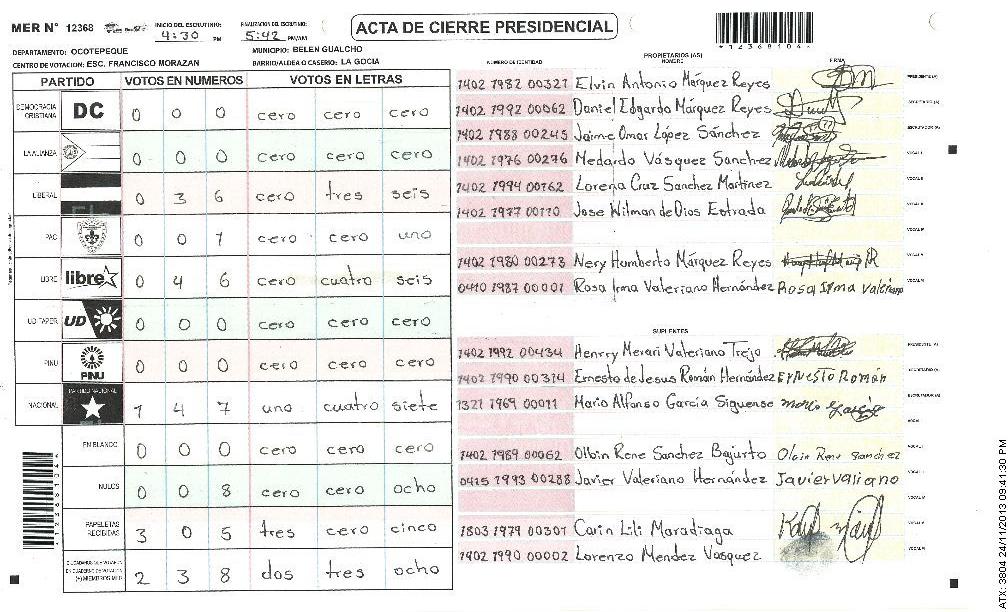 MER N° 12368
INICIO DEL ESCRUTINIO:
4:30 PM
FINALIZACION DEL ESCRUTINIO:
5:42 PM/AM
ACTA DE CIERRE PRESIDENCIAL
*12368104*
DEPARTAMENTO: OCOTEPEQUE
MUNICIPIO: BELEN GUALCHO
CENTRO DE VOTACION: ESC. FRANCISCO MORAZAN
BARRIO/ALDEA O CASERIO: LA GOCIA
PARTIDO VOTOS EN NUMEROS VOTOS EN LETRAS
DEMOCRACIA CRISTIANA DC 0 0 0 cero cero cero
LA ALIANZA 0 0 0 cero cero cero
LIBERAL 0 3 6 cero tres seis
PAC 0 0 1 cero cero uno
LIBRE libre 0 4 6 cero cuatro seis
UD FAPER UD 0 0 0 cero cero cero
PINU PINU 0 0 0 cero cero cero
NACIONAL PARTIDO NACIONAL 1 4 7 uno cuatro siete
EN BLANCO 0 0 0 cero cero cero
NULOS 0 0 8 cero cero ocho
PAPELETAS RECIBIDAS 3 0 5 tres cero cinco
2 3 8 dos tres ocho
NUMERO DE IDENTIDAD
PROPIETARIOS (AS)
NOMBRE
FIRMA
1402 1982 00327 Elvin Antonio Márquez Reyes PRESIDENTE (A)
1402 1992 00062 Daniel Edgardo Márquez Reyes SECRETARIO (A)
1402 1988 00245 Jaime Omar López Sánchez ESCRUTADOR (A)
1402 1976 00276 Medardo Vásquez Sanchez VOCAL I
1402 1994 00162 Lorena Cruz Sanchez Martinez
1402 1977 00110 Jose Wilman de Dios Estrada
1402 1980 00273 Nery Humberto Márquez Reyes
0410 1987 00001 Rosa Irma Valeriano Hernández Rosa Irma Valeriano
SUPLENTES
1402 1992 00434 Henrry Merari Valeriano Trejo PRESIDENTE (A)
1402 1990 00314 Ernesto de Jesus Román Hernández Ernesto Román SECRETARIO (A)
1321 1969 00011 Mario Alfonso Garcia Siguense ESCRUTADOR (A)
1402 1989 00062 Olbin Rene Sanchez Bajurto Olbin Rene Sanchez
0415 1993 00288 Javier Valeriano Hernández Javier Valiano
1803 1979 00307 Carin Lili Maradiaga
1402 1990 00002 Lorenzo Mendez Vasquez
ATX: 3804 24/11/2013 09:41:30 PM